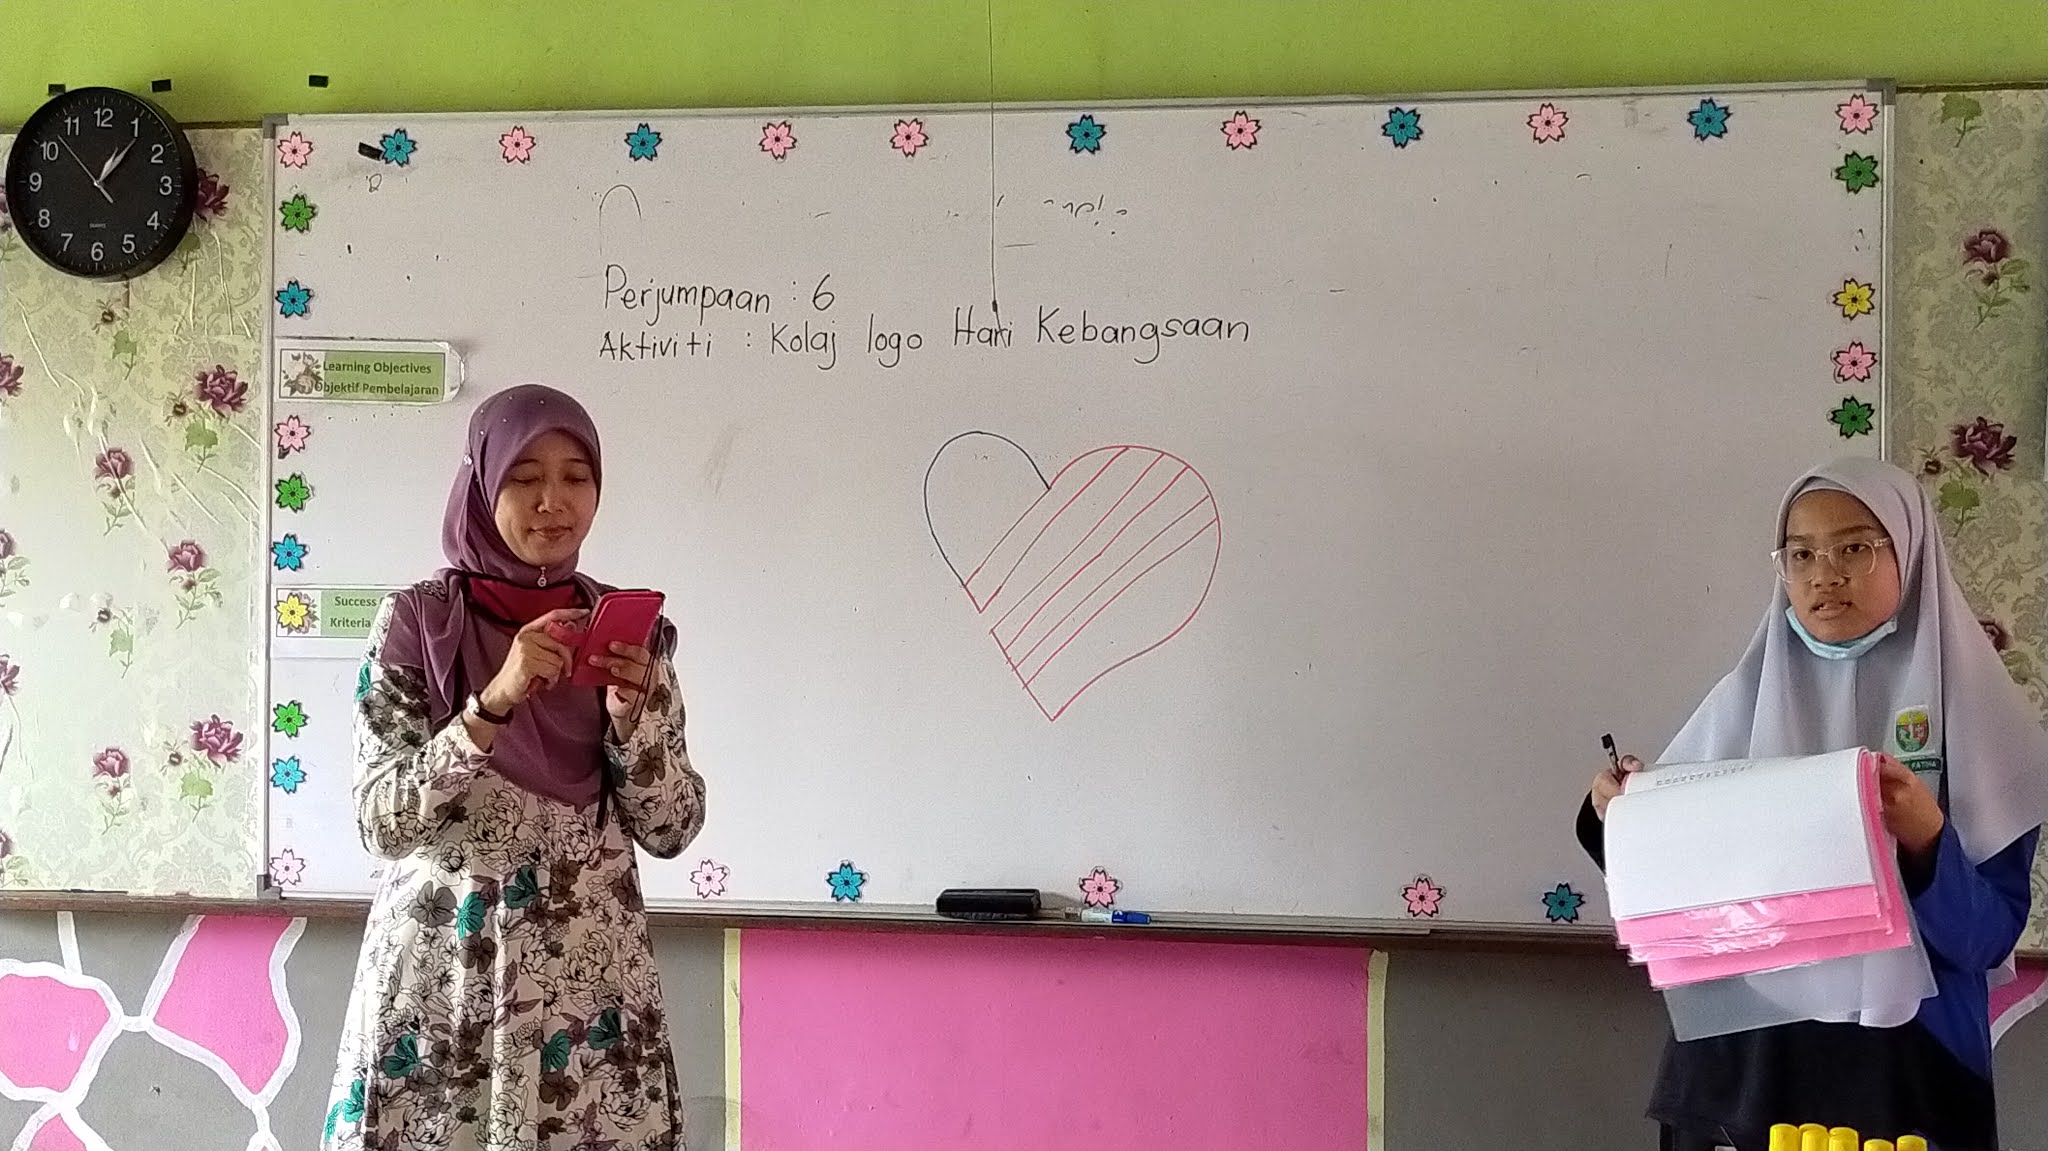 12
11
1
10
2
9
3
8
4
7
5
6
QUARTZ
Perjumpaan : 6
Aktiviti : Kolaj logo Hari Kebangsaan
Learning Objectives
Objektif Pembelajaran
Success
Kriteria
FATIHA